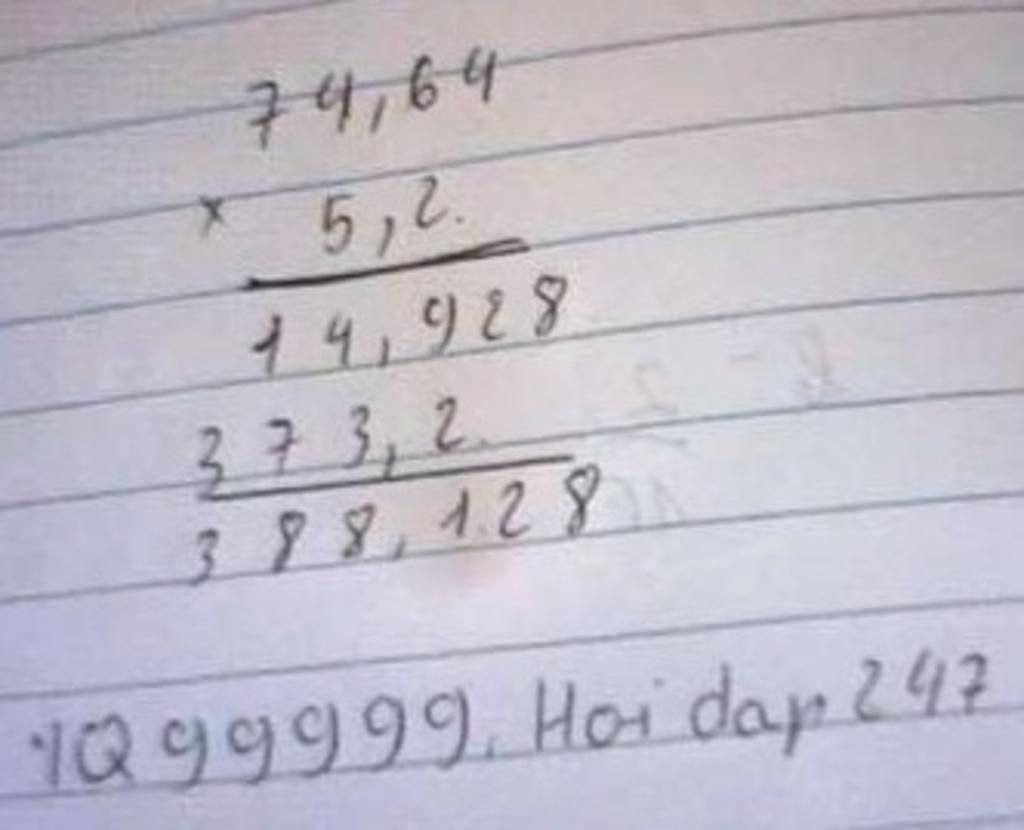 74,64
× 5,2
14,928
373,2
388,128
IQ99999. Hoi dap 247